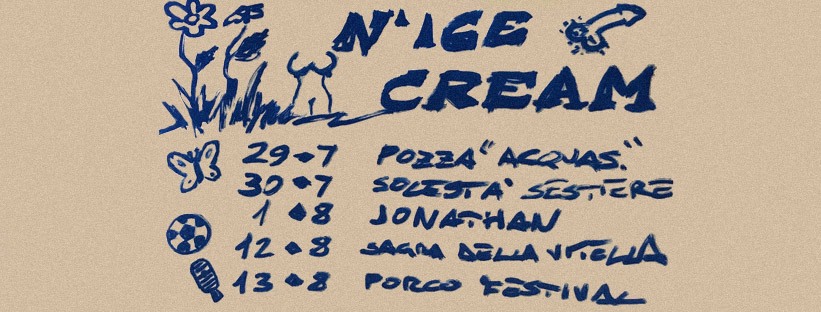 N'ICE
CREAM
29 • 7 POZZA "ACQUAS."
30 • 7 SOLESTA' SESTIERE
1 • 8 JONATHAN
12 • 8 SAGRA DELLA VITELLA
13 • 8 PORCO FESTIVAL